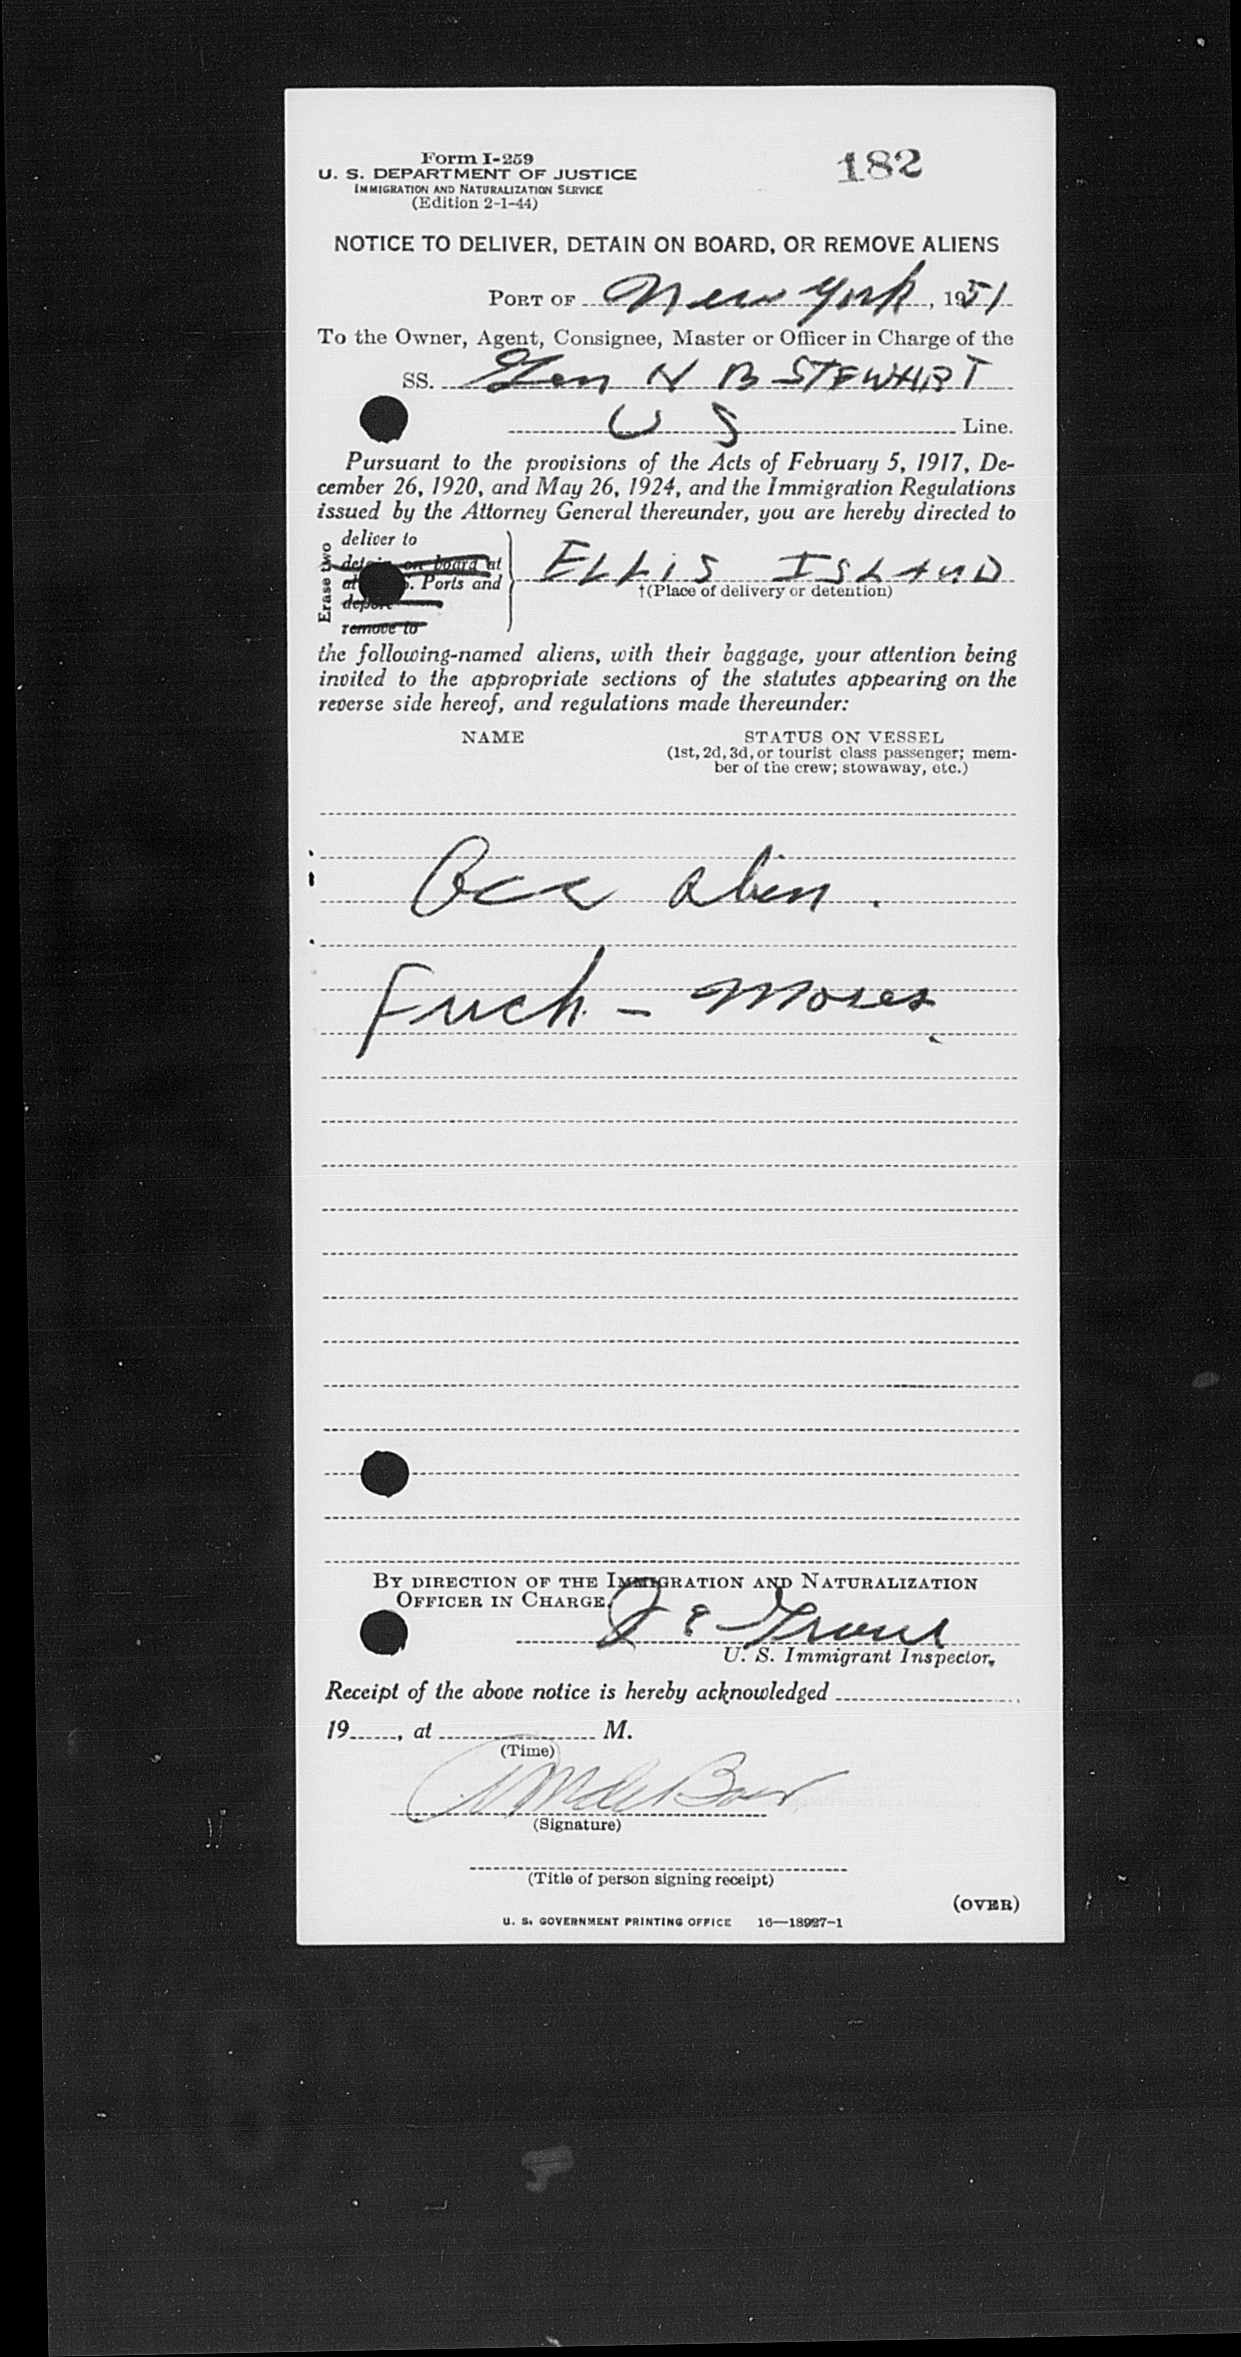 Form I-259
U. S. DEPARTMENT OF JUSTICE
IMMIGRATION AND NATURALIZATION SERVICE
(Edition 2-1-44)
182
NOTICE TO DELIVER, DETAIN ON BOARD, OR REMOVE ALIENS
PORT OF New York, 1951
To the Owner, Agent, Consignee, Master or Officer in Charge of the
SS. Gen N B STEWART
U S Line.
Pursuant to the provisions of the Acts of February 5, 1917, De-
cember 26, 1920, and May 26, 1924, and the Immigration Regulations
issued by the Attorney General thereunder, you are hereby directed to
Erase two
deliver to
on board at
Ports and
remove to
ELLIS ISLAND
†(Place of delivery or detention)
the following-named aliens, with their baggage, your attention being
invited to the appropriate sections of the statutes appearing on the
reverse side hereof, and regulations made thereunder:
NAME
STATUS ON VESSEL
(1st, 2d, 3d, or tourist class passenger; mem-
ber of the crew; stowaway, etc.)
alien.
Fuch - Moses
BY DIRECTION OF THE IMMIGRATION AND NATURALIZATION
OFFICER IN CHARGE.
U. S. Immigrant Inspector.
Receipt of the above notice is hereby acknowledged
19, at M.
(Time)
(Signature)
(Title of person signing receipt)
(OVER)
U. S. GOVERNMENT PRINTING OFFICE 16—18927-1